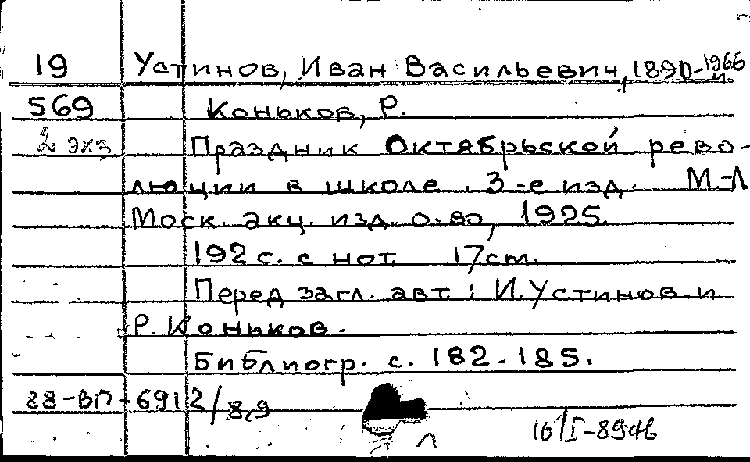 19 Устинов, Иван Васильевич, 1890-1966
569 Коньков, Р.
2 экз Праздник Октябрьской рево-
люции в школе. 3-е изд. М.-Л
Моск. акц. изд. о-во, 1925.
192 с. с нот 17 cm.
Перед загл. авт: И. Устинов и
Р. Коньков.
Библиогр. с. 182-185.
88-ВП-6912/8,9